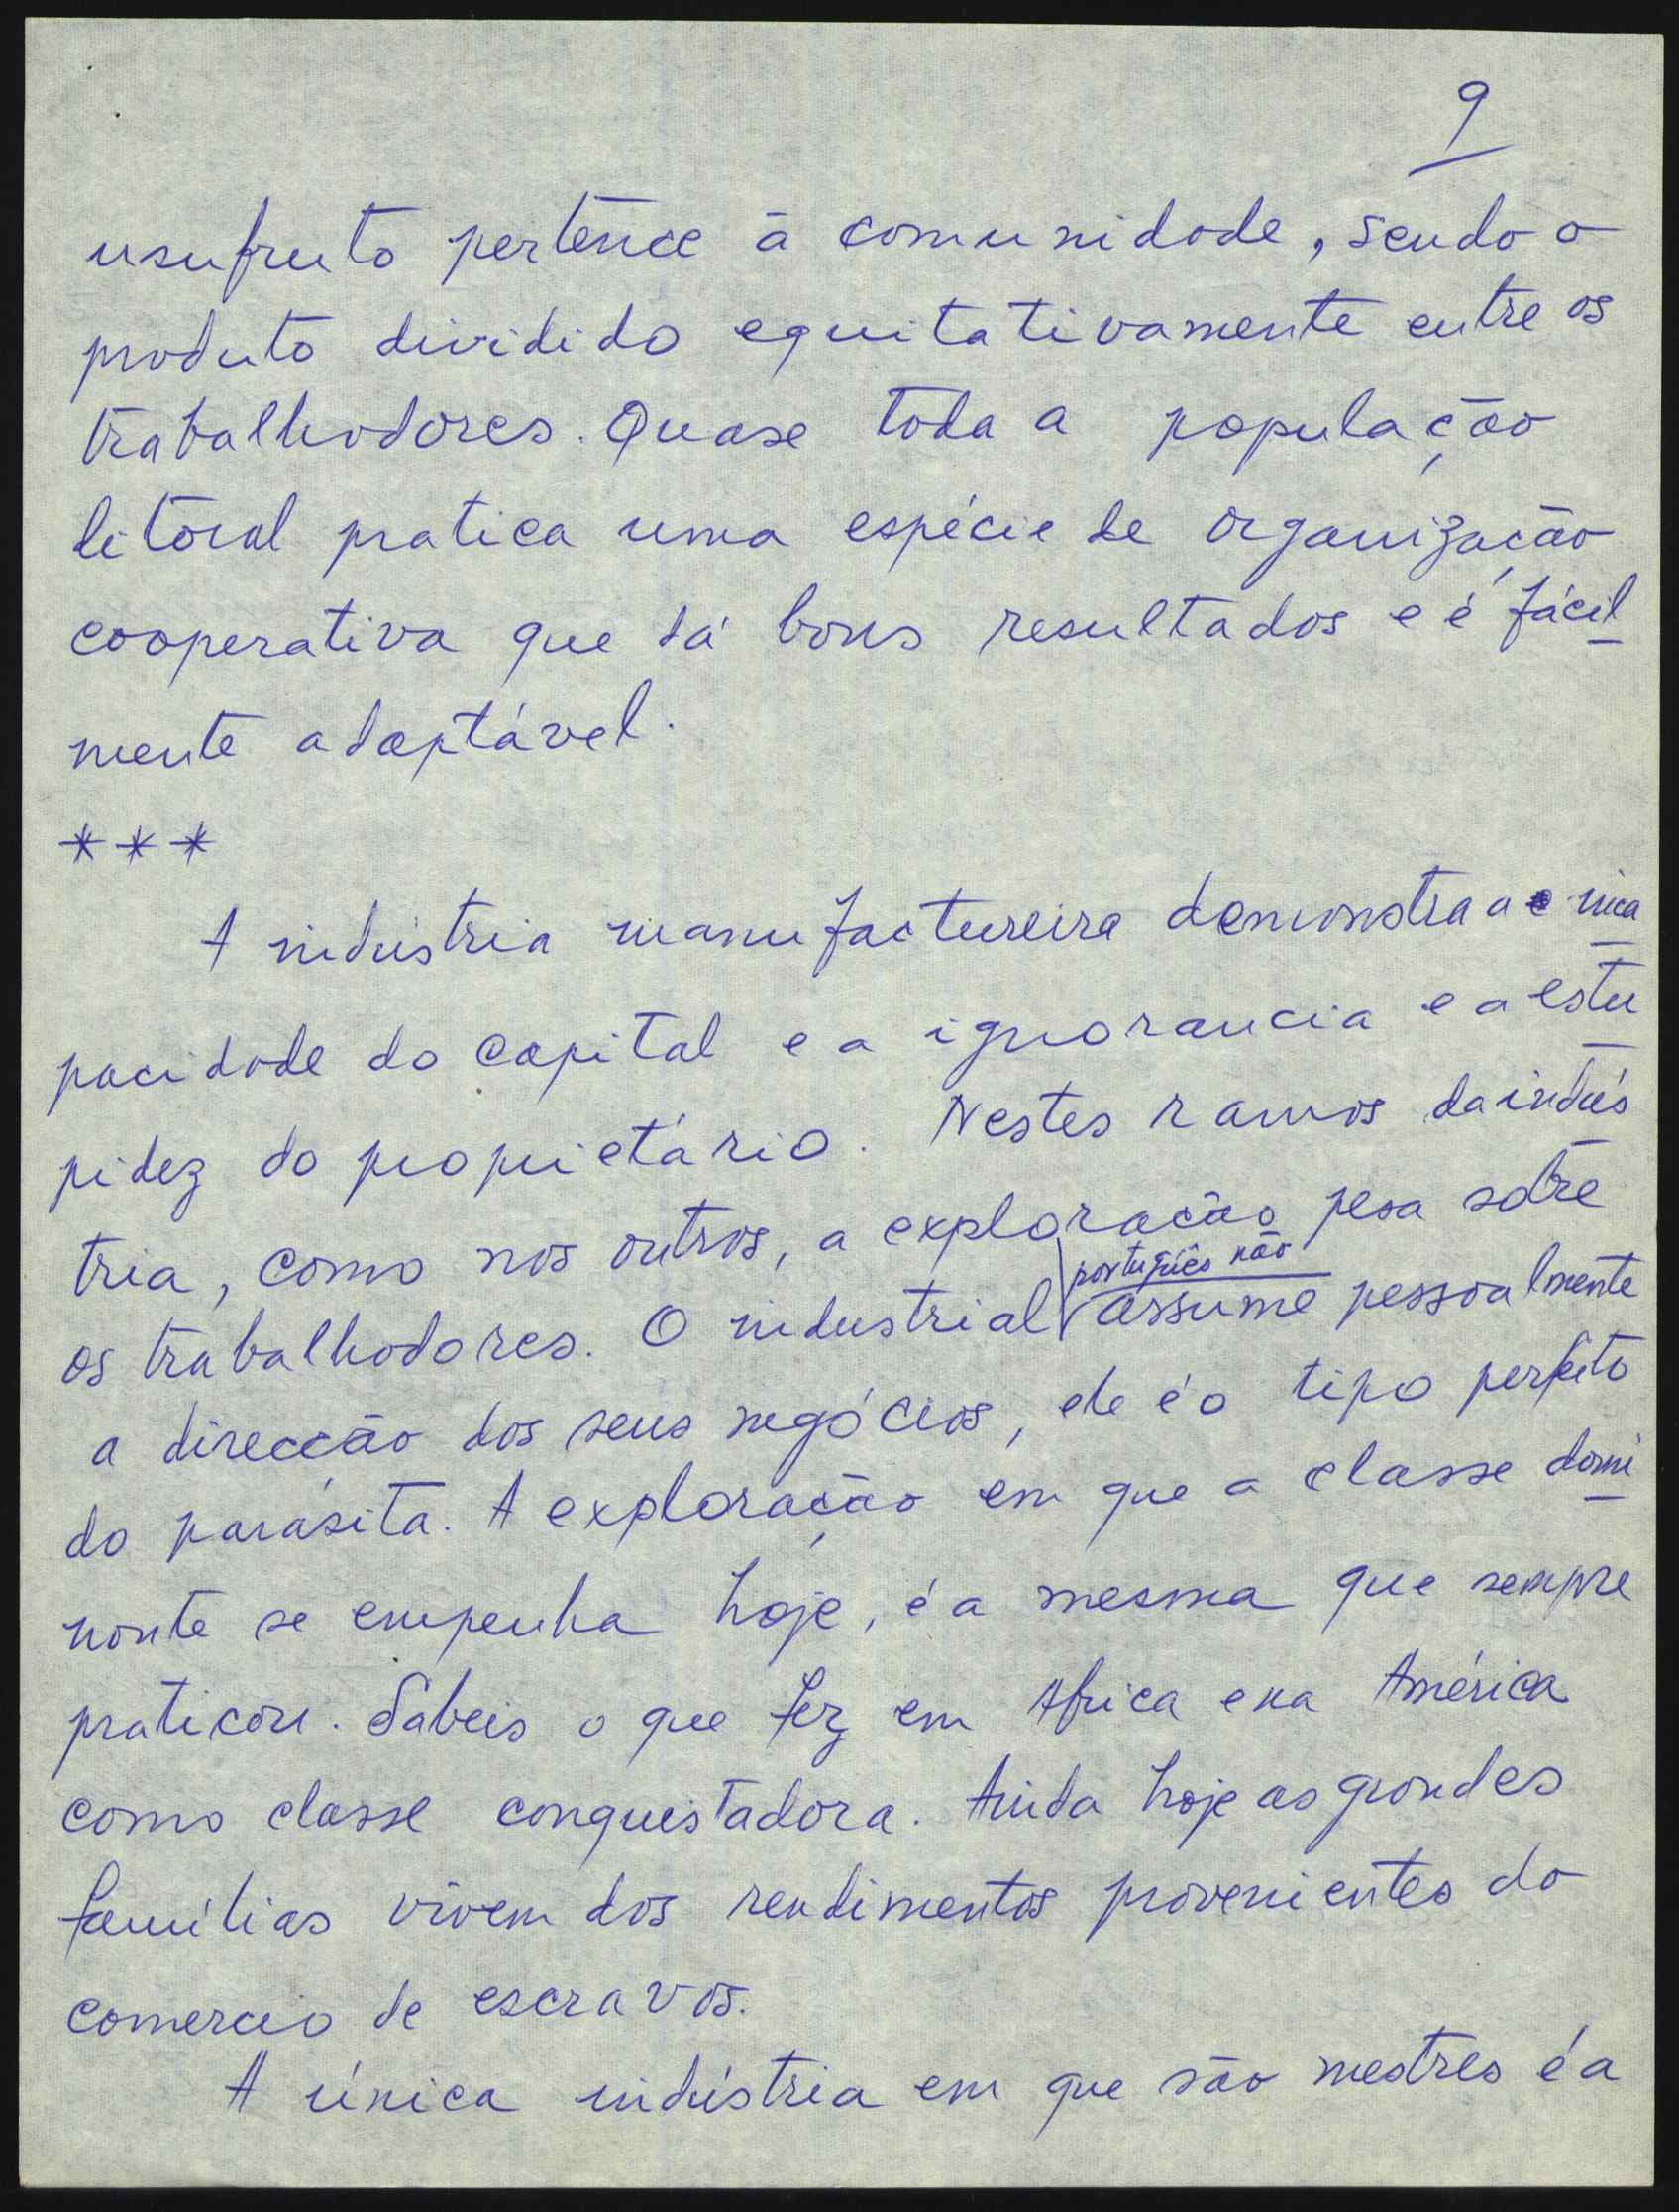 9
usufruto pertence à comunidade, sendo o
produto dividido equitativamente entre os
trabalhadores. Quase toda a população
litoral pratica uma espécie de organização
cooperativa que dá bons resultados e é fácil
mente adaptável.
***
A indústria manufactureira demonstra a inca
pacidade do capital e a ignorancia e a estu
pidez do proprietário. Nestes ramos da indús
tria, como nos outros, a exploração pesa sôbre
português não
os trabalhadores. O industrial assume pessoalmente
a direcção dos seus negócios, ele é o tipo perfeito
do parásita. A exploração em que a classe domi
nante se empenha hoje, é a mesma que sempre
praticou. Sabeis o que fez em Africa e na América
como classe conquistadora. Ainda hoje as grandes
famílias vivem dos rendimentos provenientes do
comercio de escravos.
A única indústria em que são mestres é a